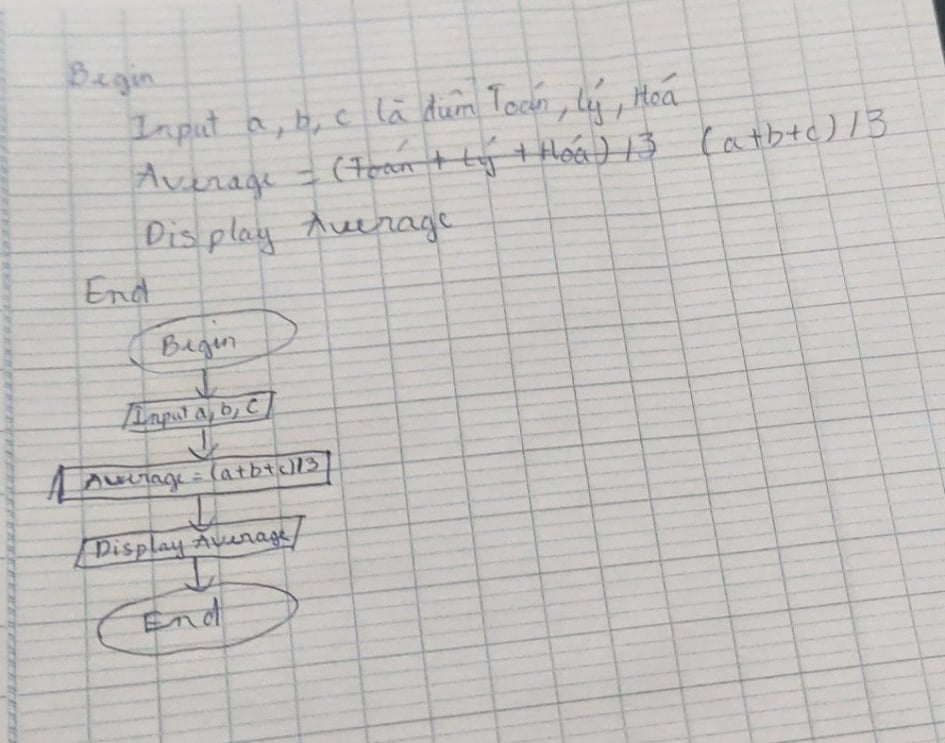 Begin
Input a, b, c là điểm Toán, Lý, Hoá
Average = (Toán + Lý + Hóa) / 3 (a+b+c) / 3
Display Average
End
Begin
Input a, b, c
Average = (a+b+c)/3
Display Average
End